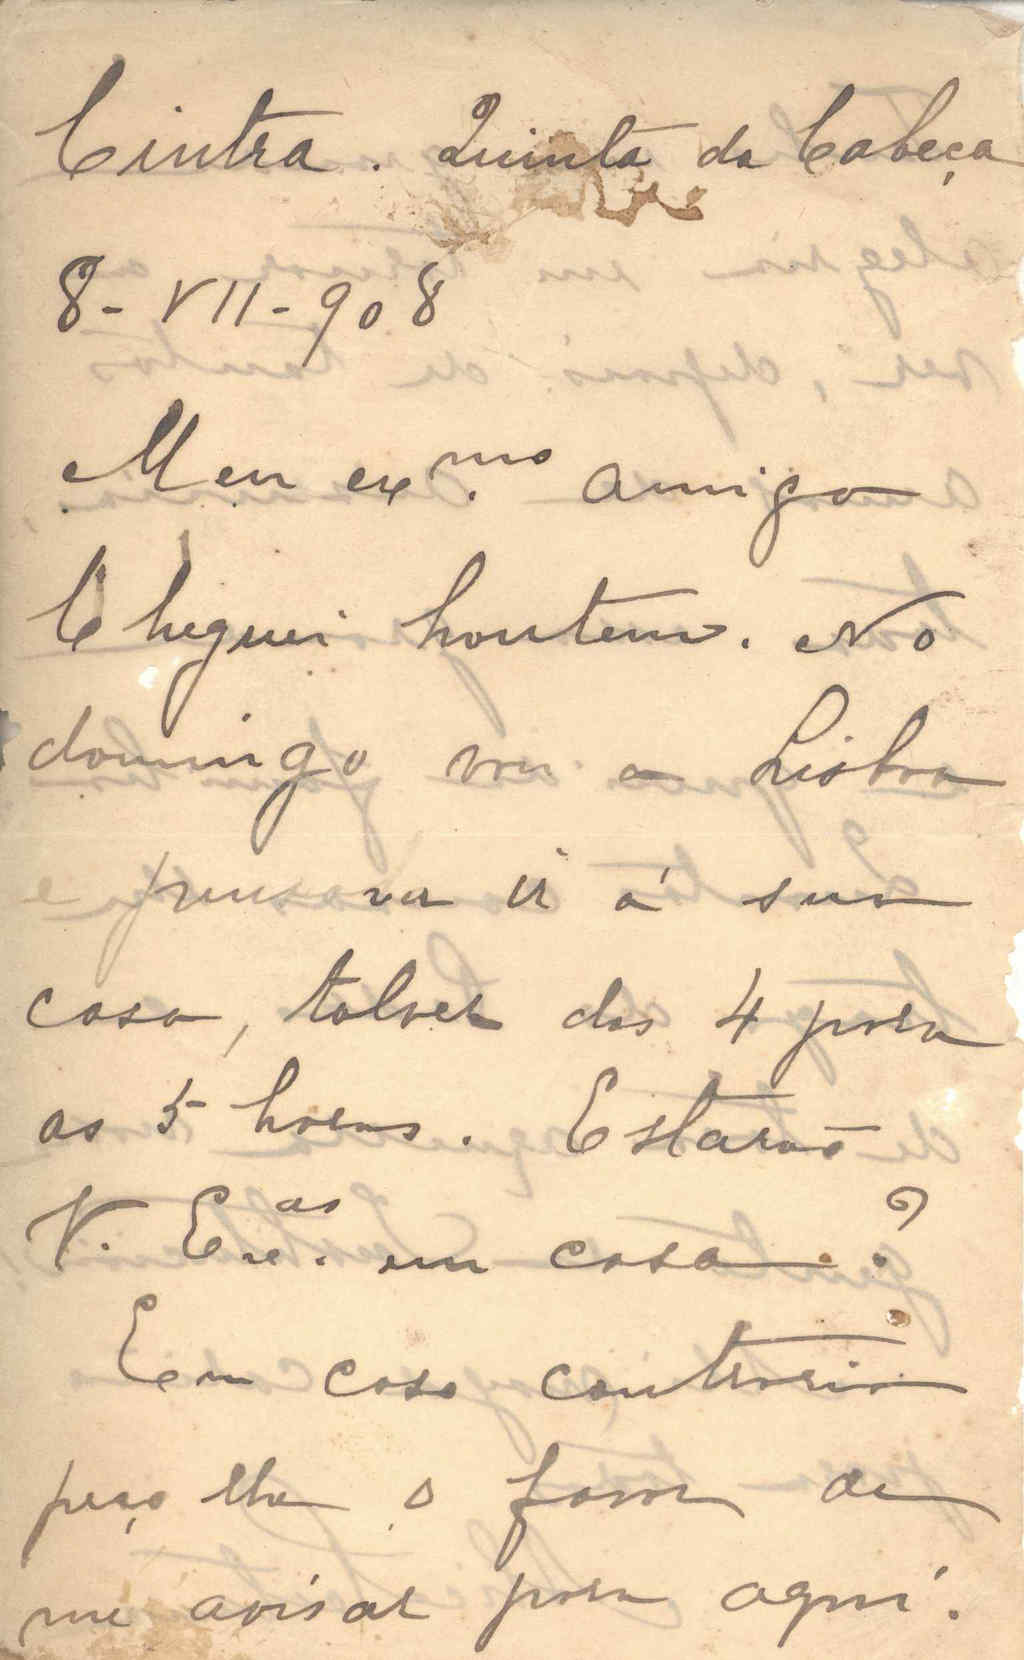 Cintra. Quinta da Cabeça
8-VII-908
Meu exmo. amigo
Cheguei hontem. No
domingo vou a Lisboa
e pensava ir á sua
casa, talvez das 4 para
as 5 horas. Estarão
V. Exas. em casa?
Em caso contrario
peço lhe o favor de
me avisar para aqui.